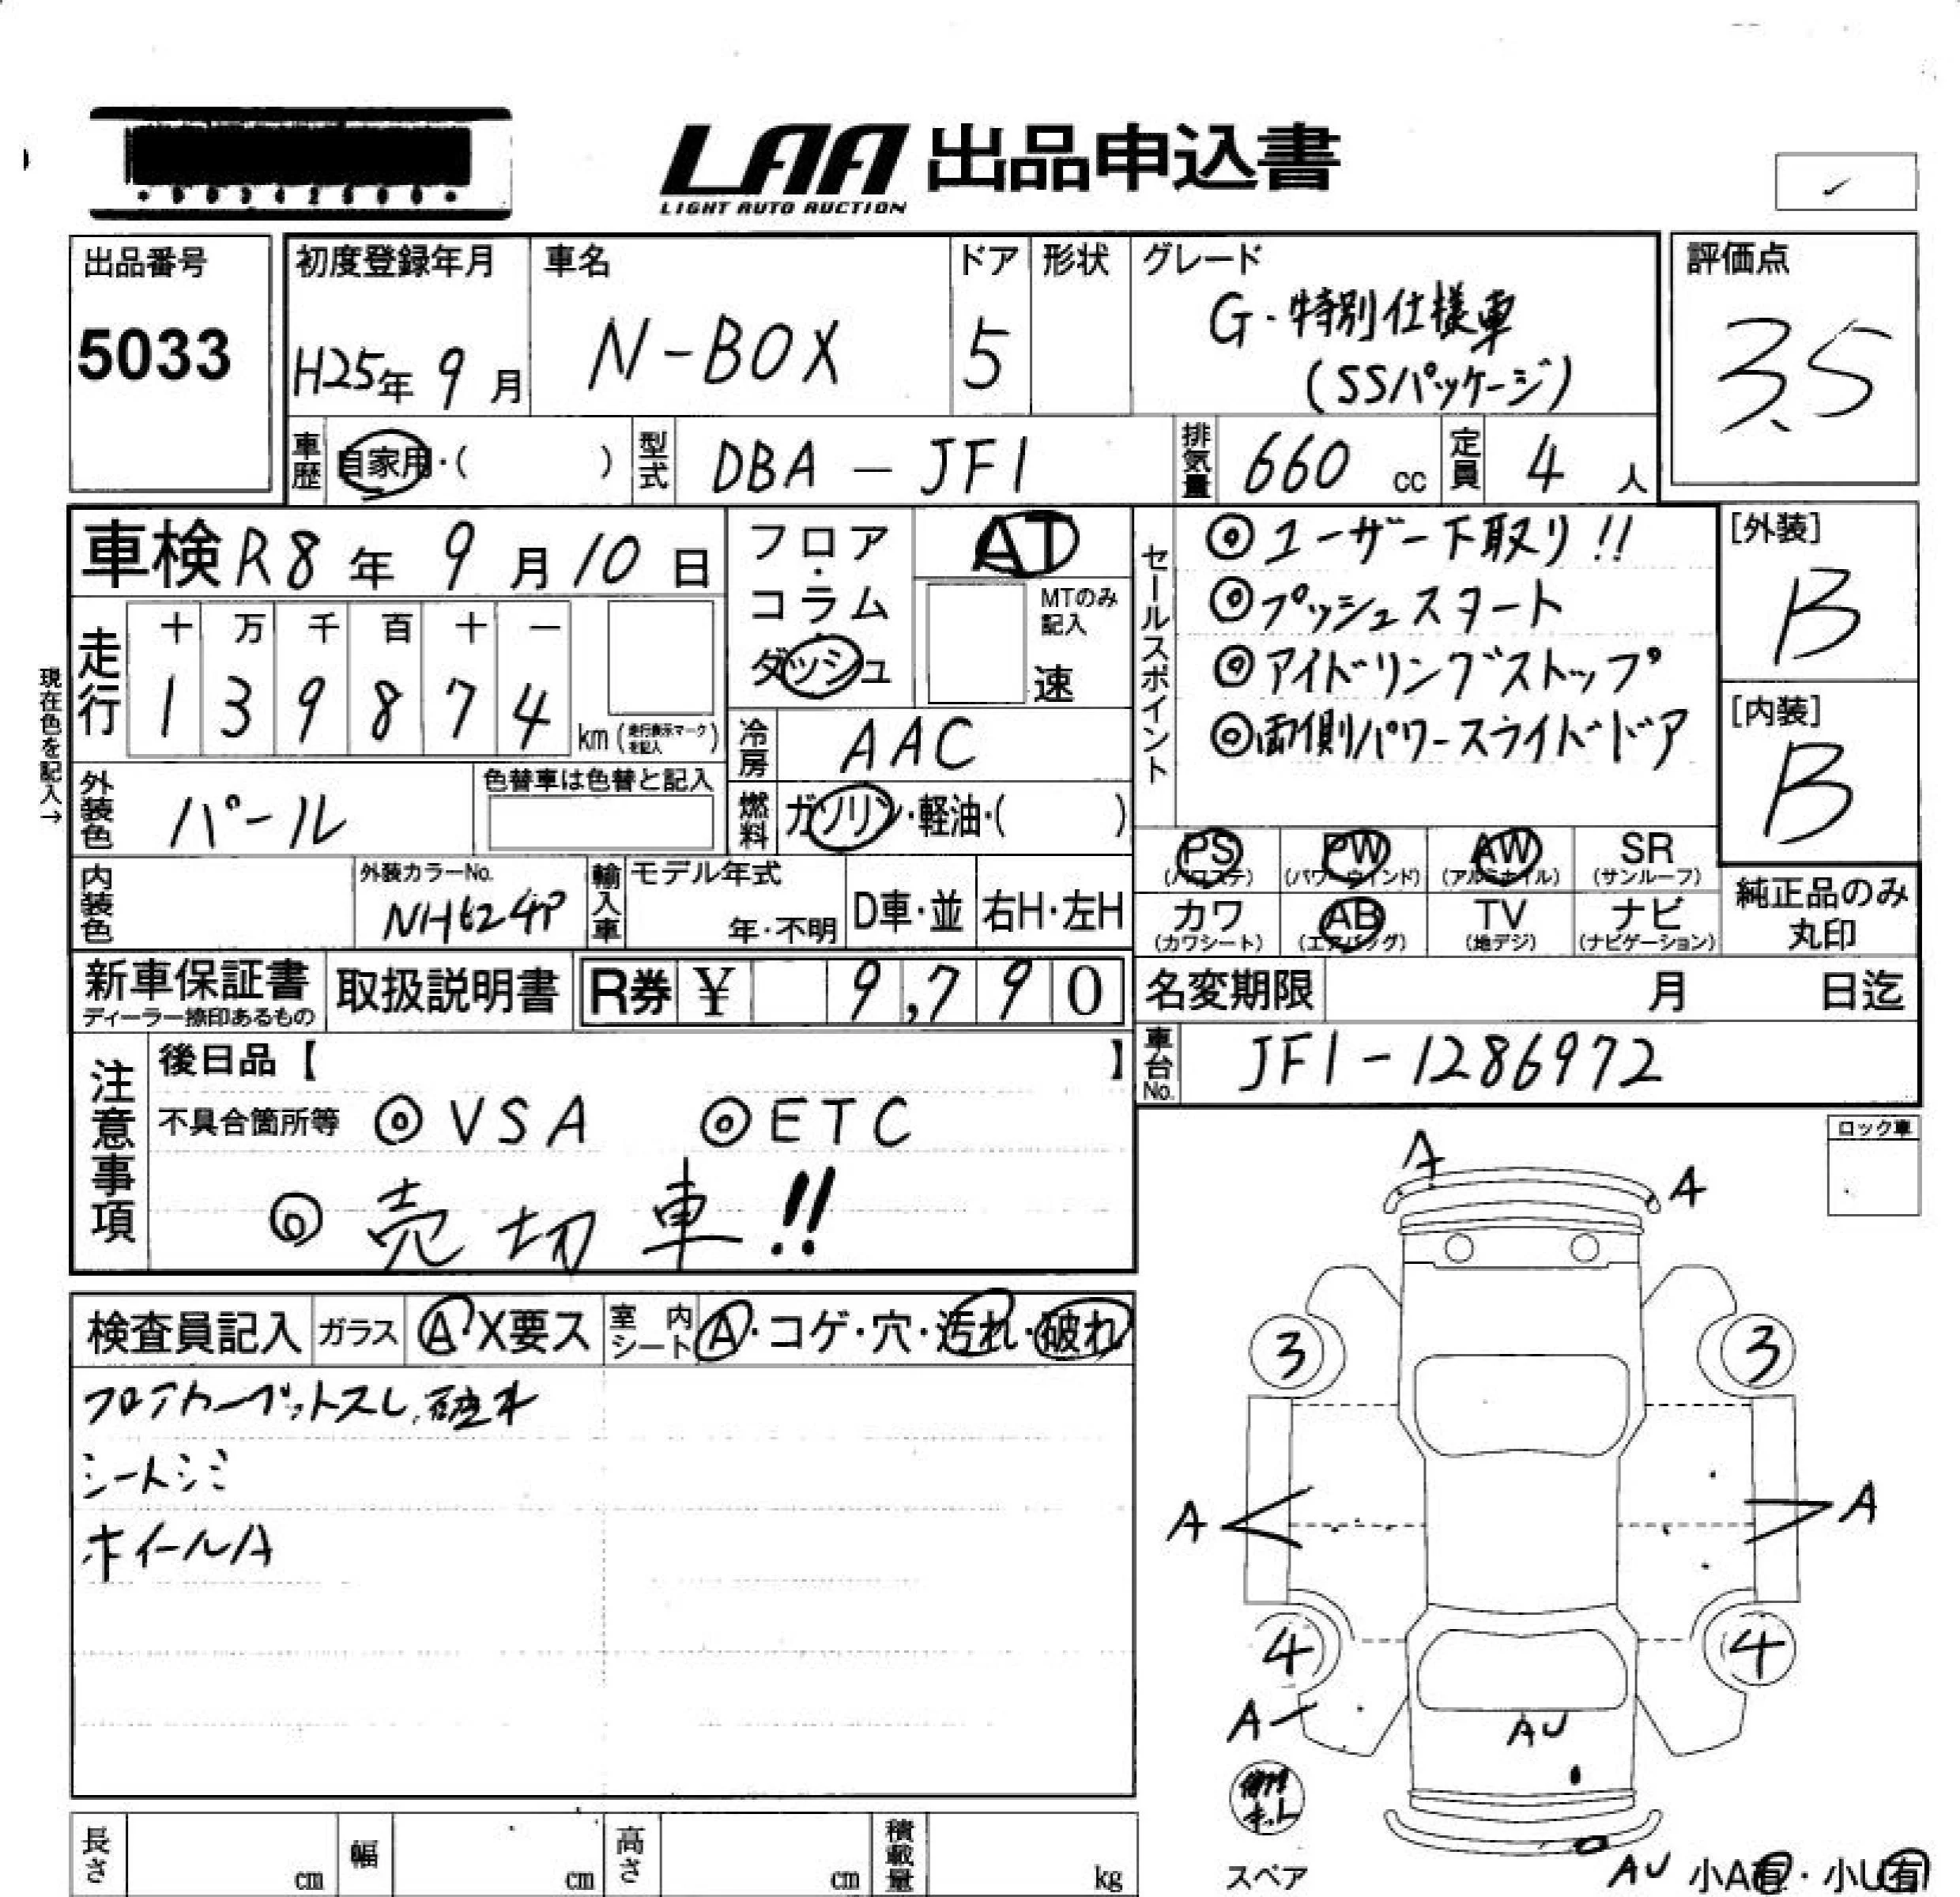 LAA 出品申込書
LIGHT AUTO AUCTION
出品番号
5033
初度登録年月
H25年 9月
車名
N-BOX
ドア
5
形状
グレード
G・特別仕様車
(SSパッケージ)
評価点
3.5
車歴
自家用・( )
型式
DBA-JF1
排気量
660 cc
定員
4人
車検 R8年 9月 10日
フロア・コラム・ダッシュ
AT
MTのみ記入
速
セールスポイント
◎ユーザー下取り!!
◎プッシュスタート
◎アイドリングストップ
◎両側パワースライドドア
[外装]
B
[内装]
B
現在色を記入→
走行
十 万 千 百 十 一
1 3 9 8 7 4 km (走行表示マークを記入)
冷房
AAC
外装色
パール
色替車は色替と記入
燃料
ガソリン・軽油・( )
PS (パワステ)
PW (パワーウインド)
AW (アルミホイル)
SR (サンルーフ)
カワ (カワシート)
AB (エアバッグ)
TV (地デジ)
ナビ (ナビゲーション)
純正品のみ
丸印
内装色
外装カラーNo.
NH624P
輸入車
モデル年式
年・不明
D車・並
右H・左H
新車保証書
ディーラー捺印あるもの
取扱説明書
R券 ¥ 9,790
名変期限
月 日迄
車台No.
JF1-1286972
注意事項
後日品【 】
不具合箇所等 ◎VSA ◎ETC
◎売切車!!
ロック車
検査員記入
ガラス
A・X要ス
室内シート
A・コゲ・穴・汚れ・破れ
フロアカーペットスレ、破れ
シートシミ
ホイールA
A
A
3
3
A
A
4
4
A
AU
スペア
AU 小A有・小U有
長さ cm
幅 cm
高さ cm
積載量 kg